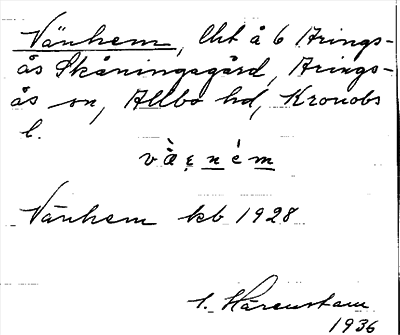 Vänhem, lht å 6 Arings-
ås Skåningsgård, Arings-
ås sn, Allbo hd, Kronobs
l.
vä̀ˌném
Vänhem kb 1928
1. Hårenstam
1936